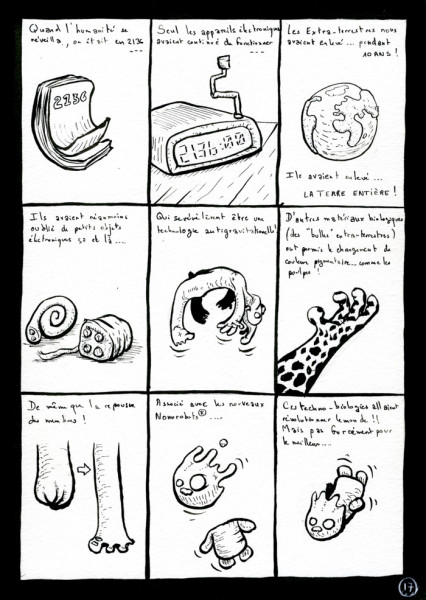 Quand l'humanité se
réveilla, on était en 2136
...
2136
Seul les appareils électroniques
avaient continué de fonctionner
...
2136:00
Les Extra-terrestres nous
avaient enlevé... pendant
10 ANS !
Ils avaient enlevé...
LA TERRE ENTIÈRE !
Ils avaient néanmoins
oublié de petits objets
électroniques çà et là....
Qui se révélèrent être une
technologie antigravitationnelle !
D'autres matériaux biologiques
(des "bulles" extra-terrestres)
ont permis le changement de
couleur pigmentaire... comme les
poulpes !
De même que la repousse
des membres !
Associé avec les nouveaux
Nonorobots® ....
Ces techno-biologies allaient
révolutionner le monde !!
Mais pas forcément pour
le meilleur....
17